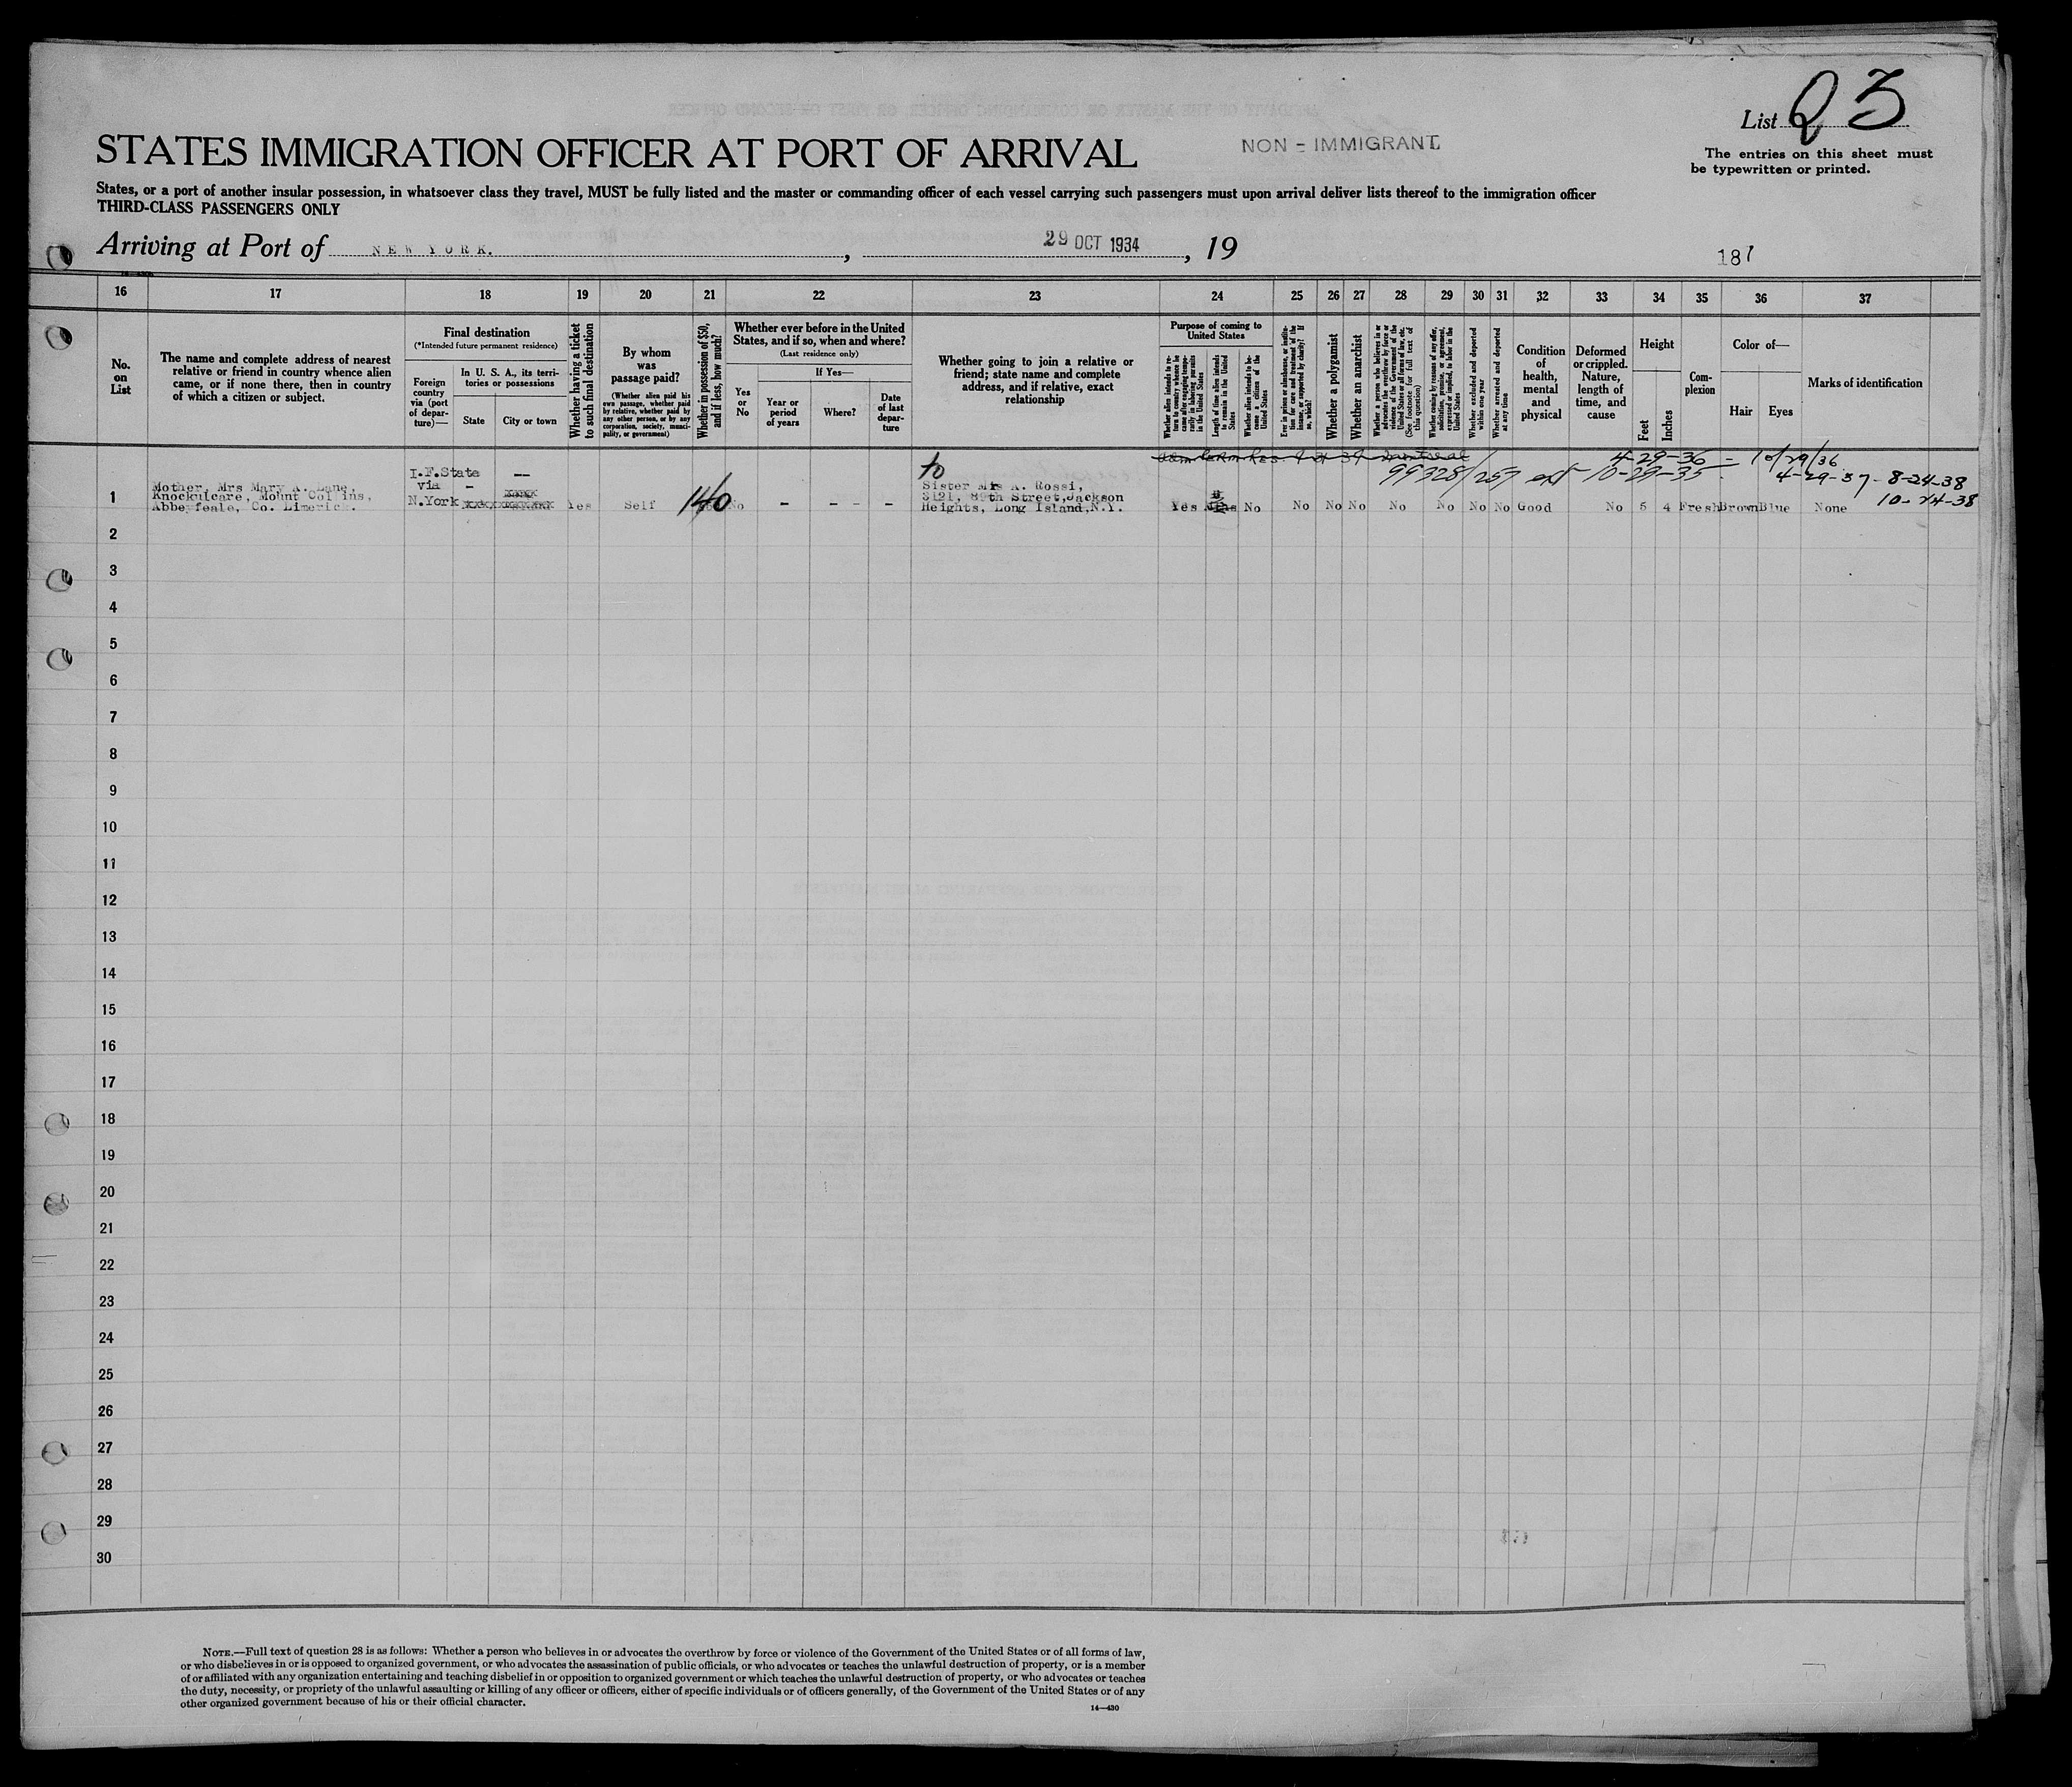 List 23
STATES IMMIGRATION OFFICER AT PORT OF ARRIVAL
NON - IMMIGRANT
The entries on this sheet must
be typewritten or printed.
States, or a port of another insular possession, in whatsoever class they travel, MUST be fully listed and the master or commanding officer of each vessel carrying such passengers must upon arrival deliver lists thereof to the immigration officer
THIRD-CLASS PASSENGERS ONLY
Arriving at Port of NEW YORK. , 29 OCT 1934 , 19
187
16 17 18 19 20 21 22 23 24 25 26 27 28 29 30 31 32 33 34 35 36 37
No.
on
List
The name and complete address of nearest
relative or friend in country whence alien
came, or if none there, then in country
of which a citizen or subject.
Final destination
(*Intended future permanent residence)
Foreign
country
via (port
of depar-
ture)—
In U. S. A., its terri-
tories or possessions
State
City or town
Whether having a ticket
to such final destination
By whom
was
passage paid?
(Whether alien paid his
own passage, whether paid
by relative, whether paid by
any other person, or by any
corporation, society, munici-
pality, or government)
Whether in possession of $50,
and if less, how much?
Whether ever before in the United
States, and if so, when and where?
(Last residence only)
Yes
or
No
If Yes—
Year or
period
of years
Where?
Date
of last
depar-
ture
Whether going to join a relative or
friend; state name and complete
address, and if relative, exact
relationship
Purpose of coming to
United States
Whether alien intends to re-
turn to country whence he
came after engaging tempo-
rarily in laboring pursuits
in the United States
Length of time alien intends
to remain in the United
States
Whether alien intends to be-
come a citizen of the
United States
Ever in prison or almshouse, or institu-
tion for care and treatment of the
insane, or supported by charity? If
so, which?
Whether a polygamist
Whether an anarchist
Whether a person who believes in or
advocates the overthrow by force or
violence of the Government of the
United States or all forms of law, etc.
(See footnote for full text of
this question)
Whether coming by reason of any offer,
solicitation, promise, or agreement,
expressed or implied, to labor in the
United States
Whether excluded and deported
within one year
Whether arrested and deported
at any time
Condition
of
health,
mental
and
physical
Deformed
or crippled.
Nature,
length of
time, and
cause
Height
Feet
Inches
Com-
plexion
Color of—
Hair
Eyes
Marks of identification
4-29-36 - 10/29/36
99328/257 ext 10-29-35 4-29-37 - 8-24-38
10-24-38
1
Mother, Mrs Mary A. Lane,
Knockulcare, Mount Collins,
Abbeyfeale, Co. Limerick.
I.F.State --
via -
N.York
Yes Self 140 No - - - -
to
Sister Mrs A. Rossi,
3121, 89th Street, Jackson
Heights, Long Island, N.Y.
Yes No No No No No No No No Good No 5 4 Fresh Brown Blue None
2
3
4
5
6
7
8
9
10
11
12
13
14
15
16
17
18
19
20
21
22
23
24
25
26
27
28
29
30
NOTE.—Full text of question 28 is as follows: Whether a person who believes in or advocates the overthrow by force or violence of the Government of the United States or of all forms of law,
or who disbelieves in or is opposed to organized government, or who advocates the assassination of public officials, or who advocates or teaches the unlawful destruction of property, or is a member
of or affiliated with any organization entertaining and teaching disbelief in or opposition to organized government or which teaches the unlawful destruction of property, or who advocates or teaches
the duty, necessity, or propriety of the unlawful assaulting or killing of any officer or officers, either of specific individuals or of officers generally, of the Government of the United States or of any
other organized government because of his or their official character.
14—430